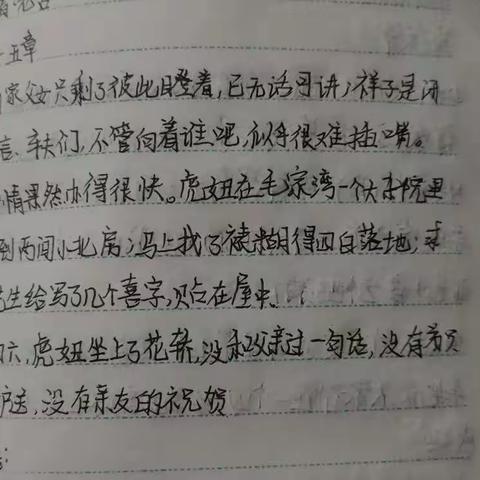 五章
家父女只剩了彼此瞪着,已无话可讲,祥子是闭
言.车夫们,不管向着谁吧,似乎很难插嘴。
情果然办得很快。虎妞在毛家湾一个大杂院里
到两间小北房;马上找了裱糊匠四白落地;求
先生给写了几个喜字,贴在屋中.
六,虎妞坐上了花轿,没和父亲过一句话,没有
护送,没有亲友的祝贺